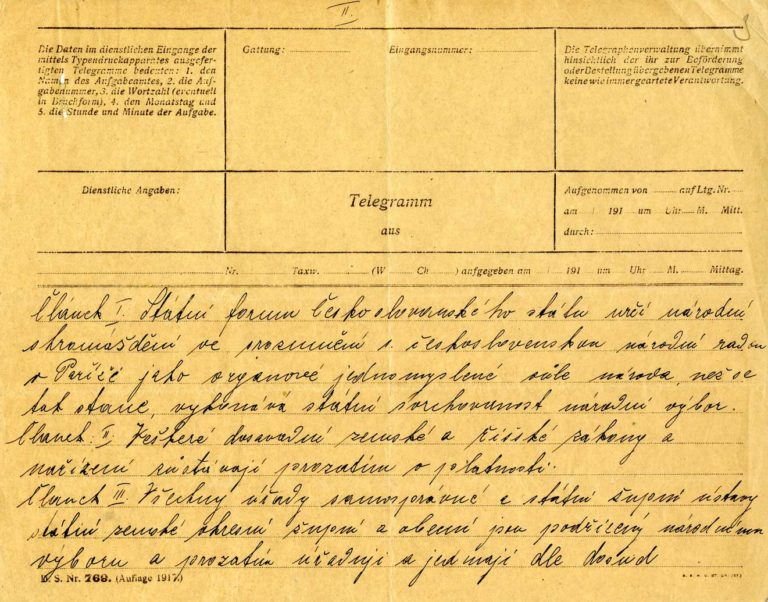 II.
3
Die Daten im dienstlichen Eingange der
mittels Typendruckapparates ausgefer-
tigten Telegramme bedeuten: 1. den
Namen des Aufgabeamtes, 2. die Auf-
gabenummer, 3. die Wortzahl (eventuell
in Bruchform), 4. den Monatstag und
5. die Stunde und Minute der Aufgabe.
Gattung:
Eingangsnummer:
Die Telegraphenverwaltung übernimmt
hinsichtlich der ihr zur Beförderung
oder Bestellung übergebenen Telegramme
keine wie immer geartete Verantwortung.
Dienstliche Angaben:
Telegramm
aus
Aufgenommen von auf Ltg. Nr.
am 191 um Uhr M. Mitt.
durch:
Nr. Taxw. (W Ch ) aufgegeben am 191 um Uhr M. Mittag.
Článek I. Státní formu českoslovanského státu určí národní
shromáždění ve srozumění s. československou národní radou
v Paříži jako orgánové jednomyslené vůle národa, než se
tak stane, vykonává státní svrchovanost národní výbor.
Článek. II. Veškeré dosavadní zemské a říšské zákony a
nařízení zůstávají prozatím v platnosti.
Článek III. Všechny úřady samosprávné e státní župní ústavy
státní zemské okresní župní a obecní jsou podřízeny národnímu
výboru a prozatím úřadují a jednají dle dosud
D. S. Nr. 769. (Auflage 1917.)